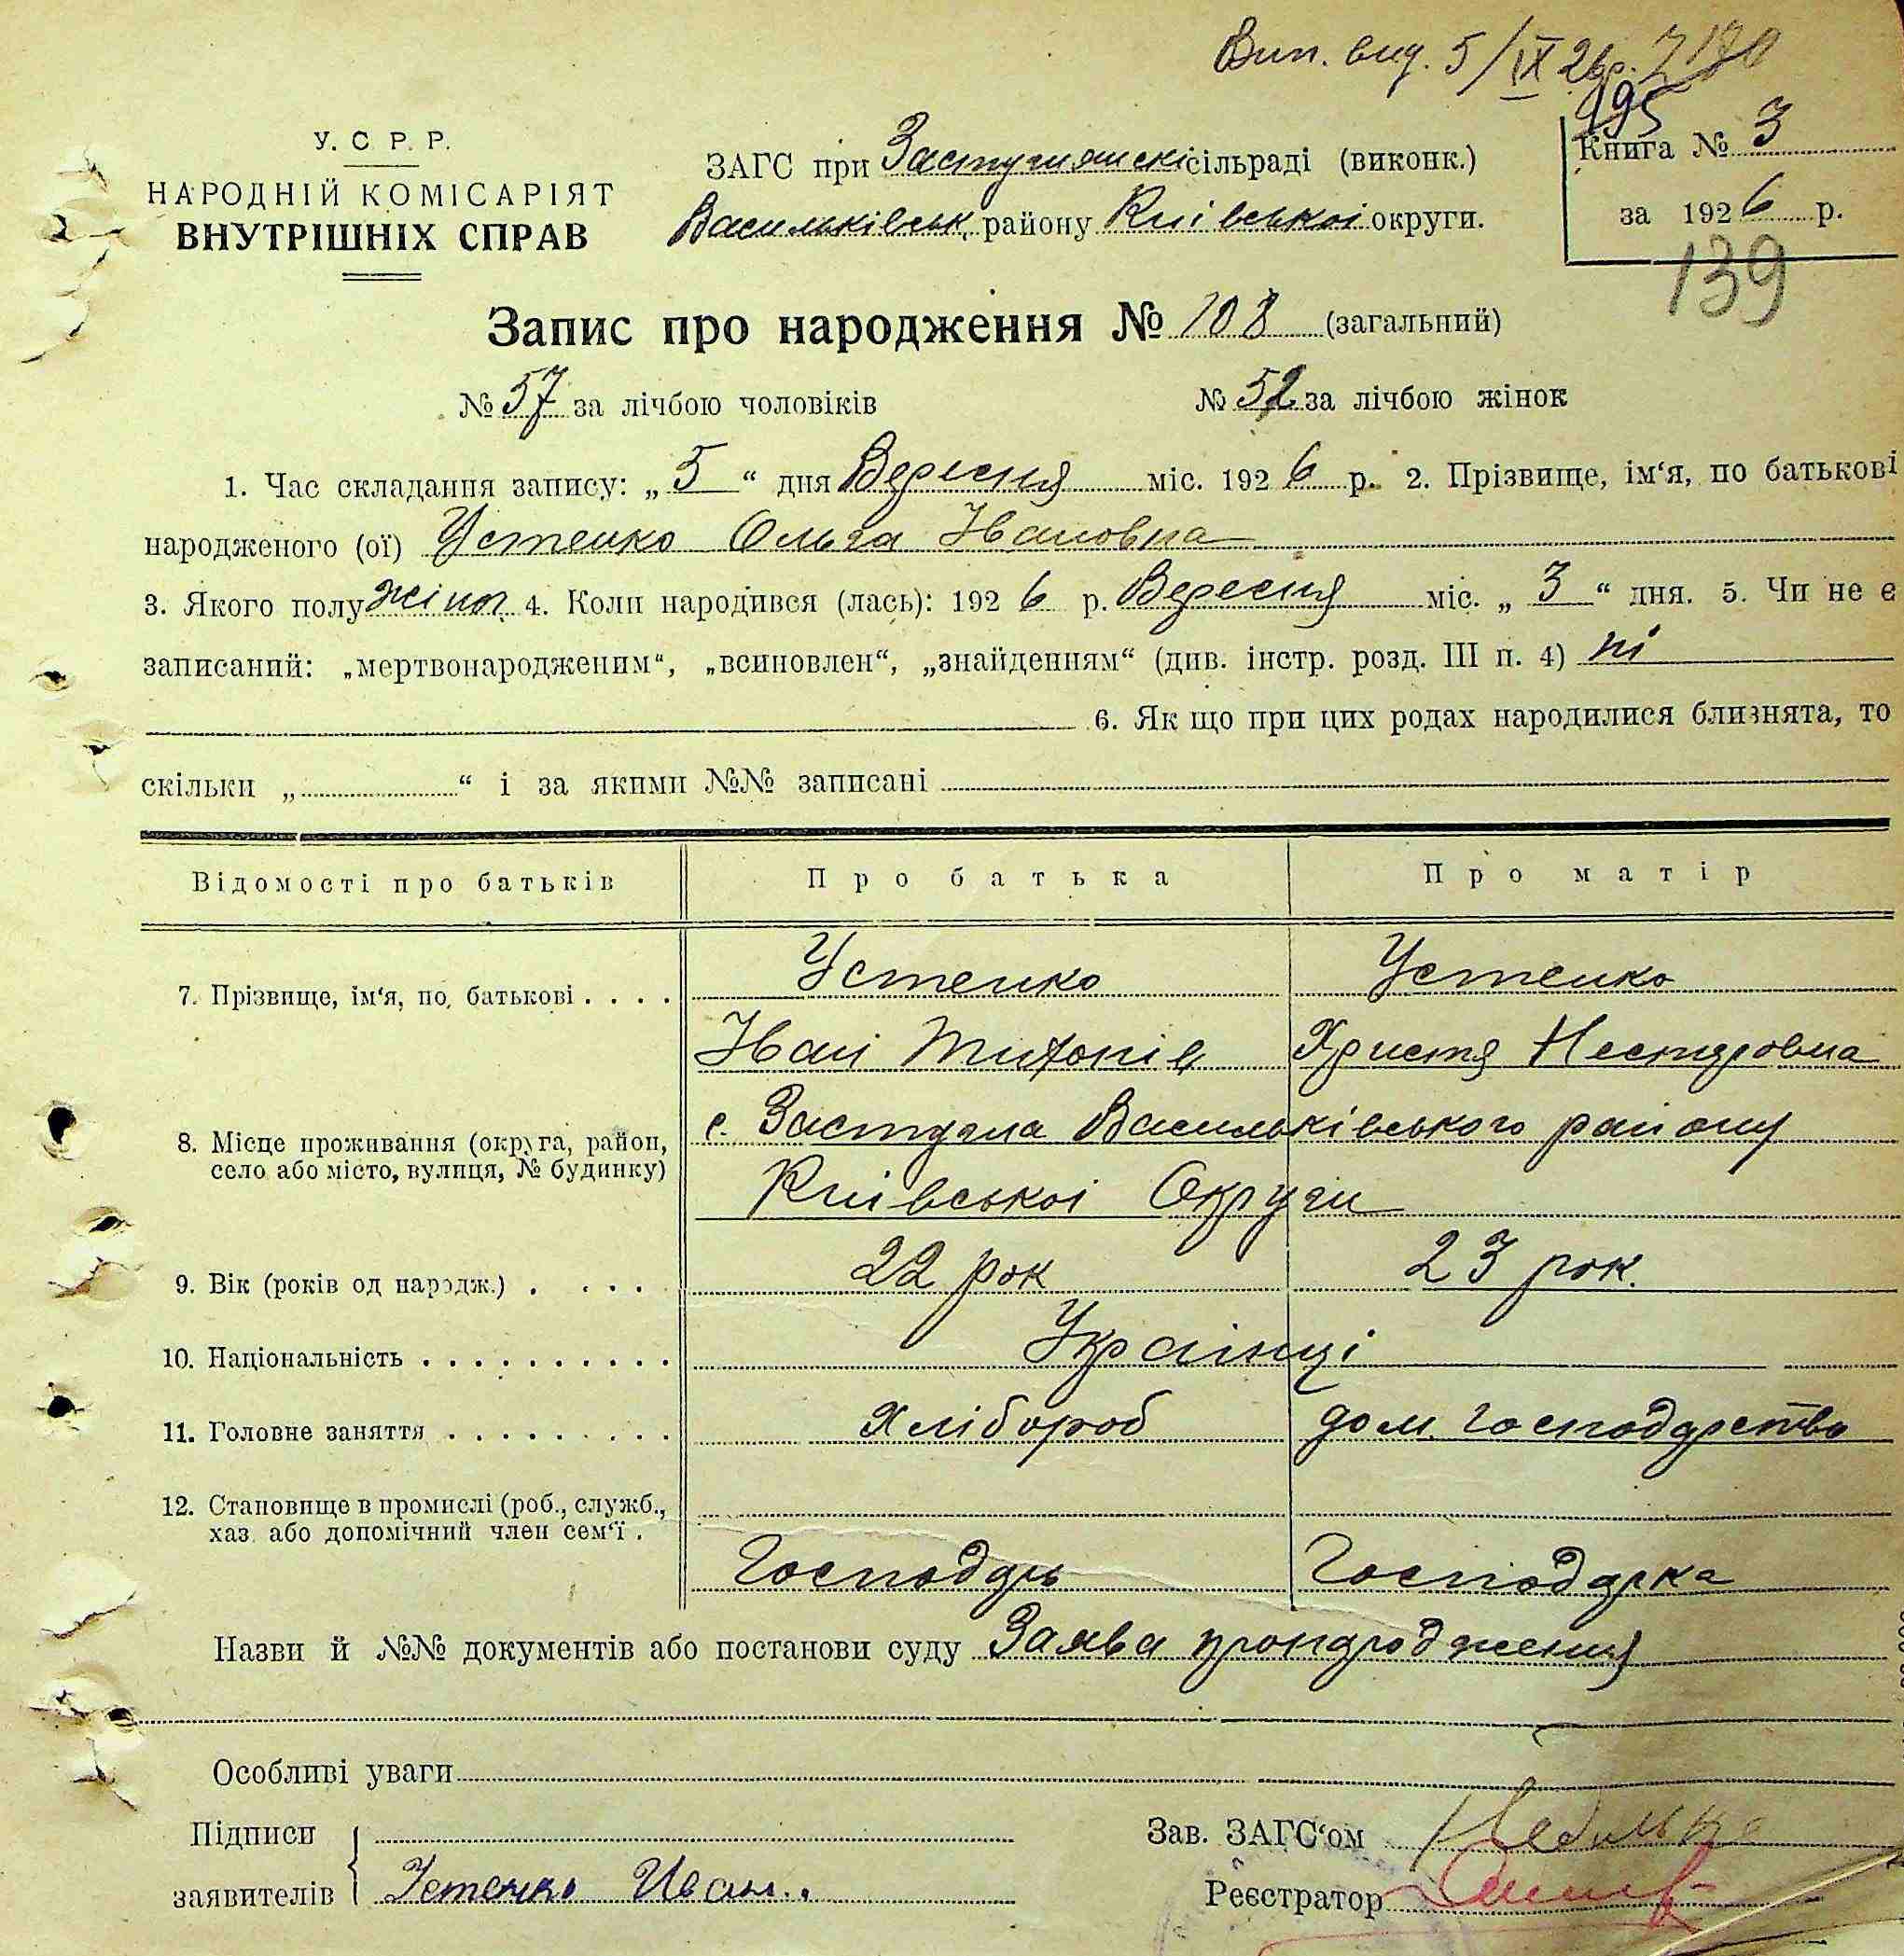 Вип. вид. 5/IX 26р.
195
У. С. Р. Р.
НАРОДНІЙ КОМІСАРІЯТ
ВНУТРІШНІХ СПРАВ
ЗАГС при Застугнянскі сільраді (виконк.)
Васильківськ. району Київськоі округи.
Книга № 3
за 1926 р.
139
Запис про народження № 108 (загальний)
№ 57 за лічбою чоловіків № 52 за лічбою жінок
1. Час складання запису: „5“ дня Вересня міс. 1926 р. 2. Прізвище, ім‘я, по батькові
народженого (ої) Устенко Ольга Івановна
3. Якого полу жіноч. 4. Коли народився (лась): 1926 р. Вересня міс. „3“ дня. 5. Чи не є
записаний: „мертвонародженим“, „всиновлен“, „знайденням“ (див. інстр. розд. III п. 4) ні
6. Як що при цих родах народилися близнята, то
скільки „ “ і за якими №№ записані
Відомості про батьків Про батька Про матір
7. Прізвище, ім‘я, по батькові . . . . Устенко Устенко
Іван Тихонів Христя Несторовна
8. Місце проживання (округа, район,
село або місто, вулиця, № будинку)
с. Застугна Васильківського району
Київськоі Округи
9. Вік (років од народж.) . . . . 22 рок 23 рок.
10. Національність . . . . . . . . . . Українці
11. Головне заняття . . . . . . . . . Хлібороб дом. господарство
12. Становище в промислі (роб., служб.,
хаз. або допомічний член сем‘ї .
Господарь Господарка
Назви й №№ документів або постанови суду Заява про народження
Особливі уваги
Підписи
заявителів Устенко Иван..
Зав. ЗАГС‘ом
Реєстратор